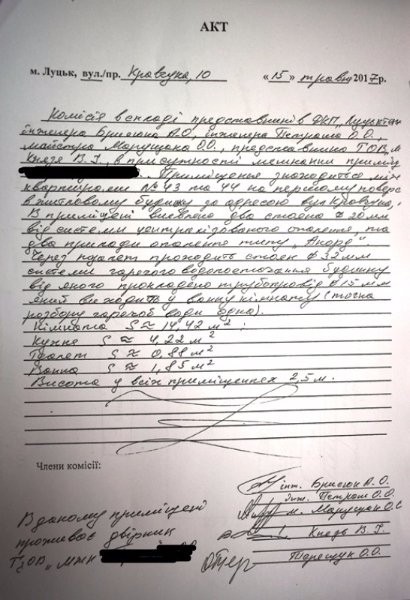 АКТ
м. Луцьк, вул./пр. Кравчука, 10 «15» травня 2017р.
Комісія в складі представників ДКП "Луцьктепло
інженера Брисюк А.О, інженера Петраш О.О.,
майстра Марущака О.О., представника ТОВ
Князь В.Г, в присутності мешканки приміщ
Приміщення знаходиться між
квартирами № 43 та 44 на первому поверсі
в житловому будинку за адресою вул Кравчука,
В приміщені виявлено два стояка ⌀ 20мм
від системи централізованого опалення, та
два прилади опалення типу "Акорд"
Через туалет проходить стояк ⌀ 32мм
системи гарячого водопостачання будинку
від якого прокладено трубопровід ⌀ 15 мм
який виходить у ванну кімнату (точка
розбору гарячої води одна).
Кімната S ≈ 14,42 м² :
Кухня S ≈ 4,22 м²
Туалет S ≈ 0,88 м²
Ванна S ≈ 1,85 м²
Висота у всіх приміщеннях 2,5 м.
Члени комісії:
інж. Брисюк А.О.
інж. Петраш О.О.
м. Марущак О.О
Князь В.Г
Терещук О.О.
В даному приміщені
проживає двірник
ТзОВ "МЖК